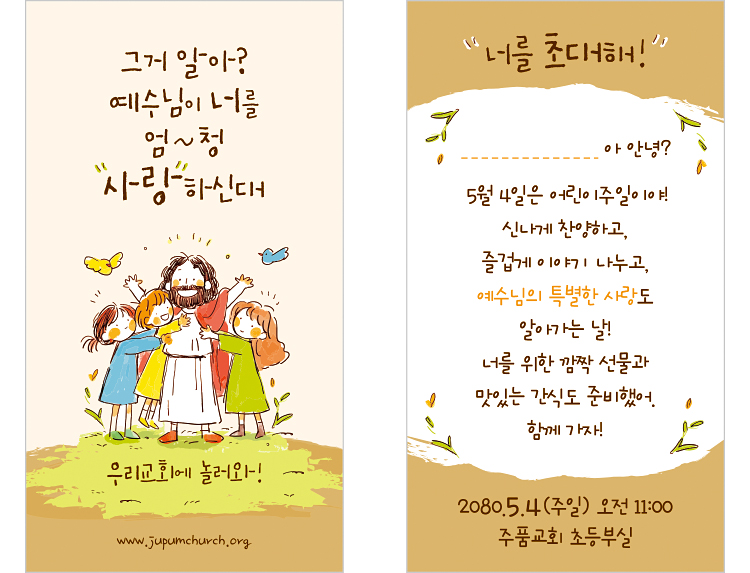 그거 알아?
예수님이 너를
엄~청
"사랑"하신대
우리교회에 놀러와!
www.jupumchurch.org
"너를 초대해!"
____________아 안녕?
5월 4일은 어린이주일이야!
신나게 찬양하고,
즐겁게 이야기 나누고,
예수님의 특별한 사랑도
알아가는 날!
너를 위한 깜짝 선물과
맛있는 간식도 준비했어.
함께 가자!
2080.5.4(주일) 오전 11:00
주품교회 초등부실